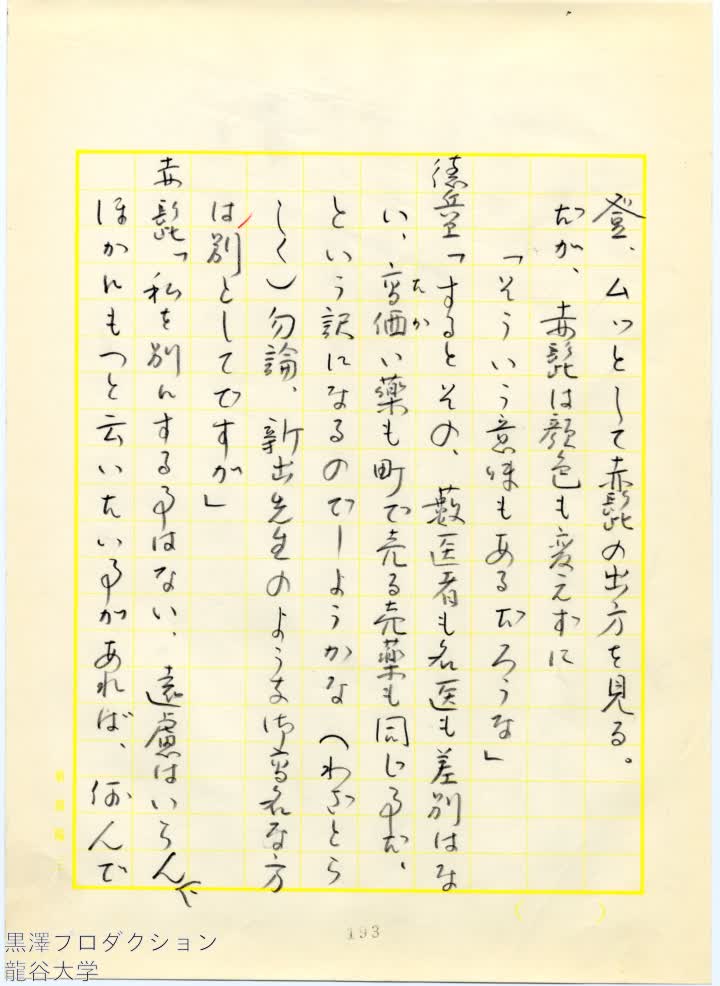 登、ムッとして赤髭の出方を見る。
だが、赤髭は顔色も変えずに
「そういう意味もあるだろうな」
徳兵衛「するとその、藪医者も名医も差別はな
い、高価い薬も町で売る売薬も同じ事だ、
たか
という訳になるのでしようかな(わざとら
しく)勿論、新出先生のような御高名な方
は別としてですが」
赤髭「私を別にする事はない、遠慮はいらん
ほかにもつと云いたい事があれば、何んで
193
黒澤プロダクション
龍谷大学